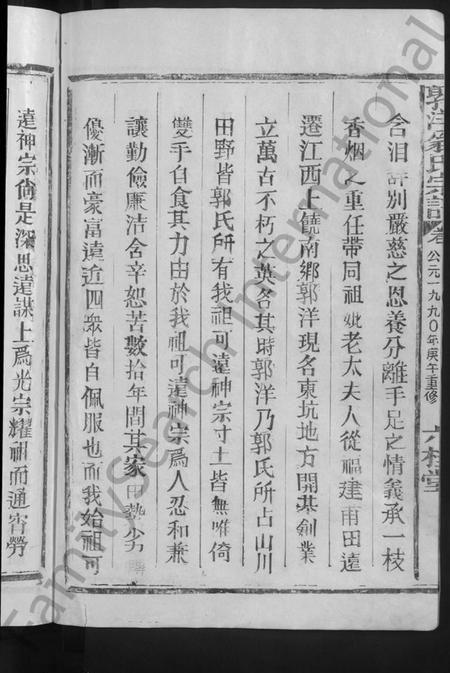 郭洋翁氏宗譜 卷 公元一九九〇年庚午重修 六桂堂
含泪 辞别嚴慈之恩養分離手足之情義承一枝
香烟之重任带同祖妣老太夫人從福建甫田遠
遷江西上饒南鄉郭洋現名東坑地方開基創業
立萬古不朽之英名其時郭洋乃郭氏所占山川
田野皆郭氏所有我祖可達神宗寸土皆無唯倚
雙手自食其力由於我祖可達神宗為人忍和兼
讓勤儉廉洁舍辛恕苦數拾年間其家 勢劣
優漸而豪富遠近四衆皆自佩服也而我始祖可
達神宗尚是深思遠謀上為光宗耀祖而通宵勞
FamilySearch International